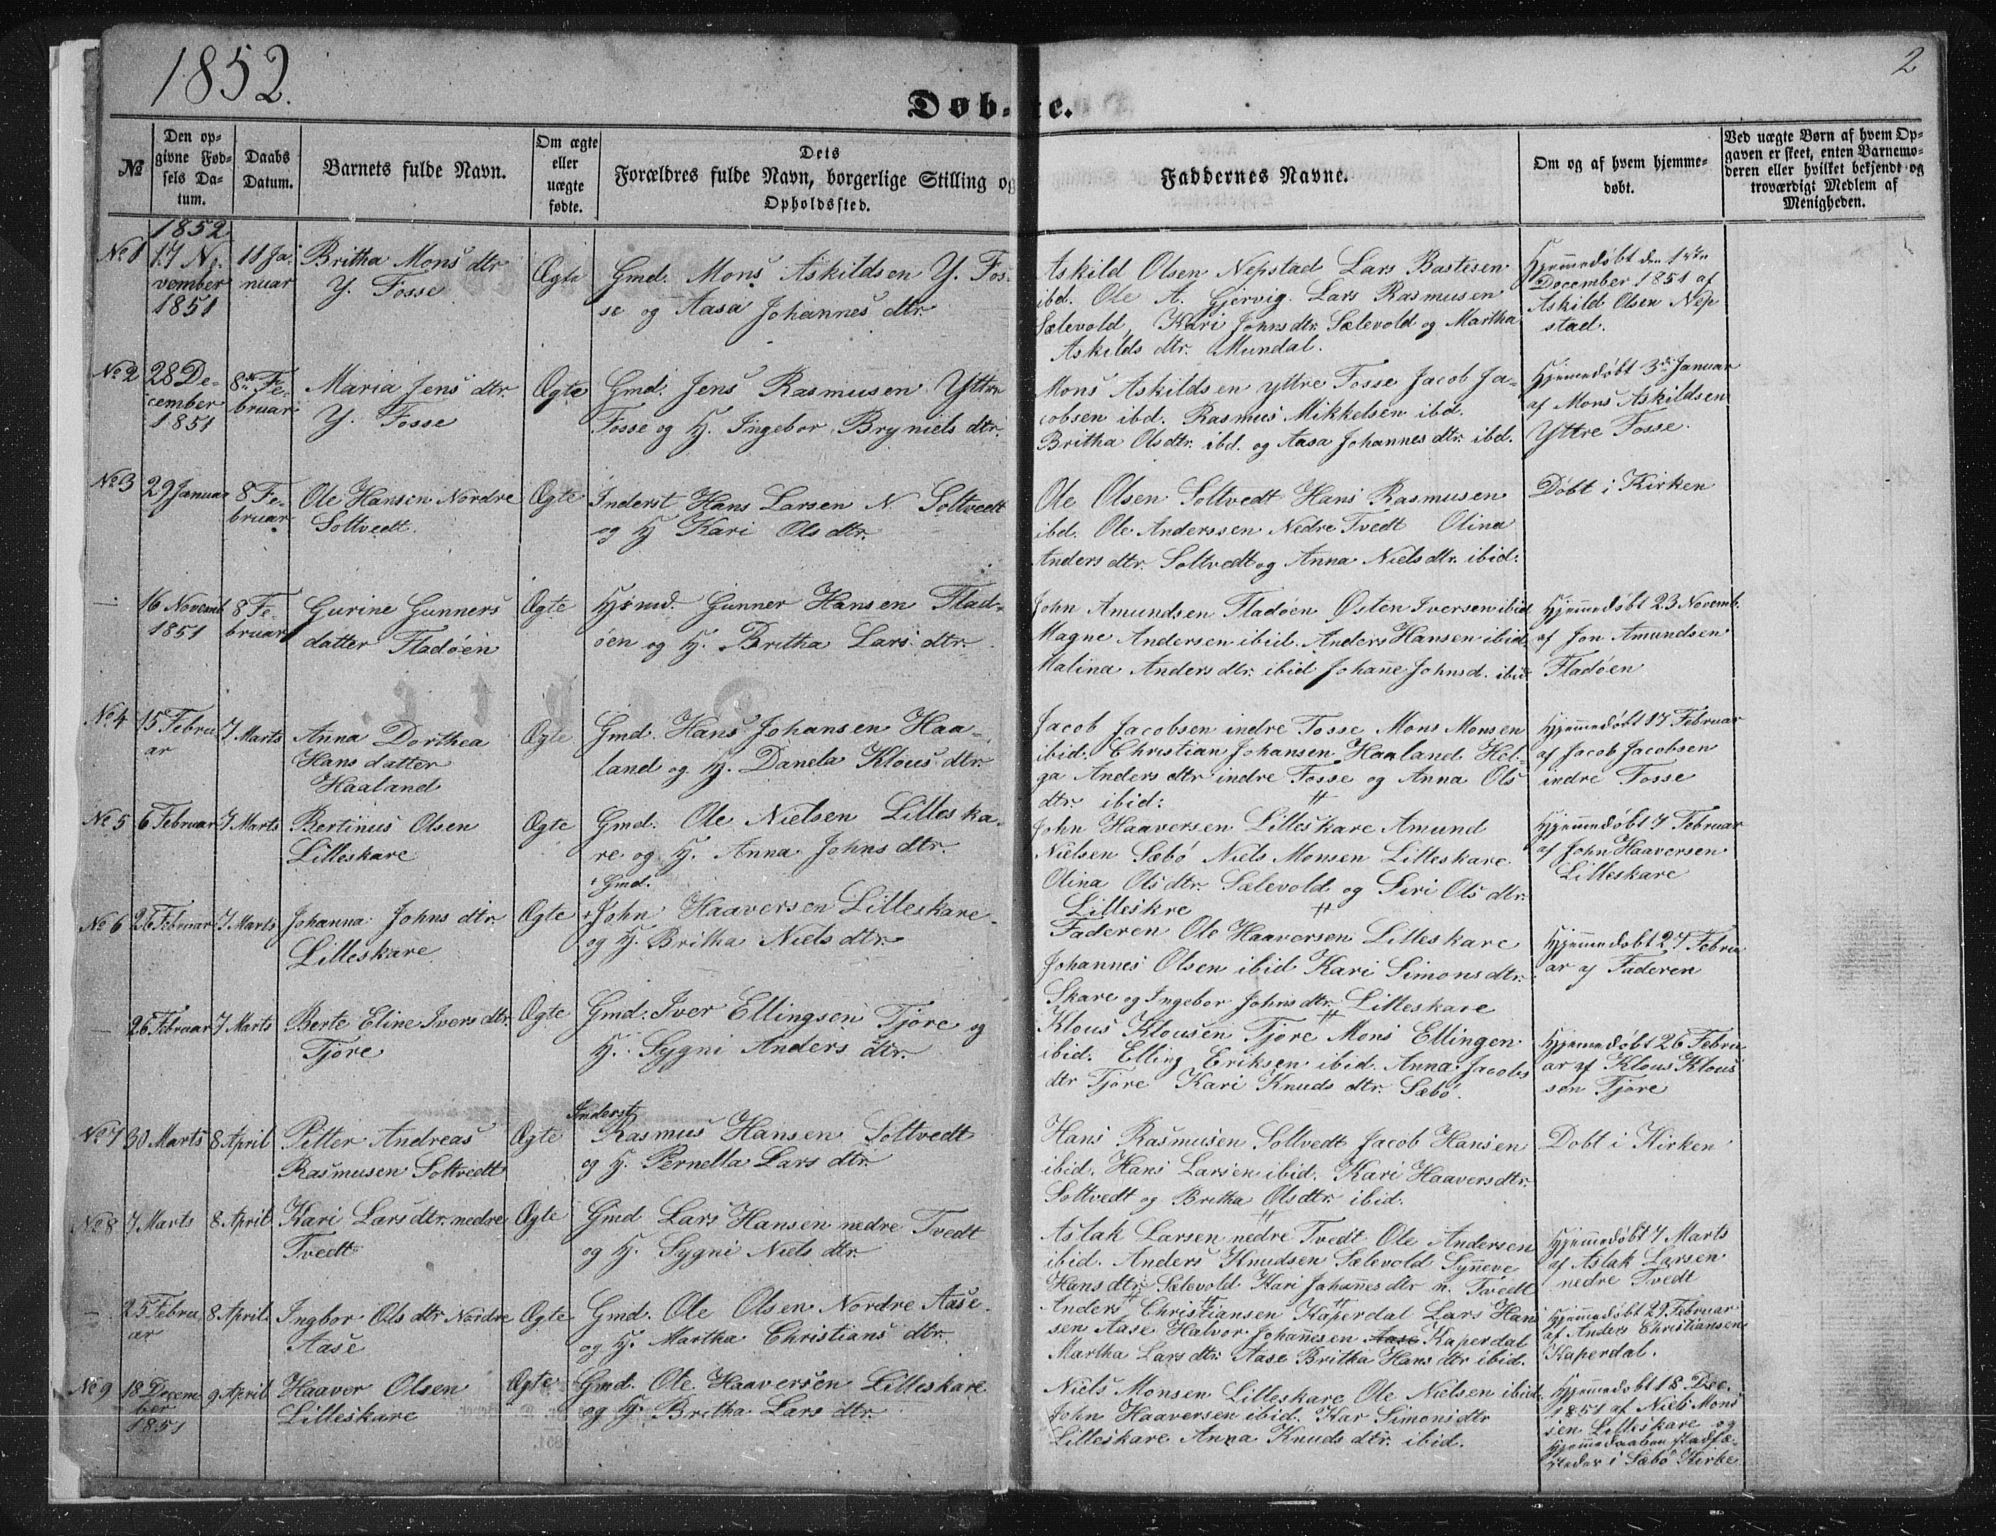 1852.
2
Døb-te.
№
Den op-
givne Fød-
sels Da-
tum.
Daabs
Datum.
Barnets fulde Navn.
Om ægte
eller
uægte
fødte.
Dets
Forældres fulde Navn, borgerlige Stilling og
Opholdssted.
Faddernes Navne.
Om og af hvem hjemme-
døbt.
Ved uægte Børn af hvem Op-
gaven er skeet, enten Barnemo-
deren eller hvilket bekjendt og
troværdigt Medlem af
Menigheden.
1852
No 1
17 No-
vember
1851
11 Ja-
nuar
Britha Mons dtr
Y. Fosse
Ægte
Gmd. Mons Askildsen Y. Fos-
se og Aasa Johannes dtr.
Askild Olsen Nepstad Lars Bastesen
ibd. Ole A. Gjervig. Lars Rasmusen
Sælevold, Kari Johns dtr. Sælevold og Martha
Askilds dtr. Mundal.
Hjemmedøbt den 1ste
December 1851 af
Askild Olsen Nep
stad.
No 2
28 De-
cember
1851
8de Fe-
bruar
Maria Jens dtr.
Y. Fosse
Ægte
Gmd. Jens Rasmusen Yttre
Fosse og H. Ingebor Bryniels dtr.
Mons Askildsen yttre Fosse Jacob Ja-
cobsen ibd. Rasmus Mikkelsen ibd.
Britha Olsdtr. ibd. og Aasa Johannes dtr. ibd.
Hjemedøbt 3di Januar
af Mons Askildsen
Yttre Fosse.
No 3
29 Januar
8 Fe-
bruar
Ole Hansen Nordre
Soltvedt.
Ægte
Inderst Hans Larsen N. Soltvedt
og H Kari Ols dtr.
Ole Olsen Soltvedt Hans Rasmusen
ibd. Ole Anderssen Nedre Tvedt Olina
Anders dtr. Soltvedt og Anna Niels dtr. ibid:
Døbt i Kirken
—
16 Novemb
1851
8 Fe-
bruar
Gurine Gunners
datter Fladøen
Ægte
Hjsmd. Gunner Hansen Flad-
øen og H. Britha Lars dtr.
John Amundsen Fladøen Østen Iversen ibid
Magne Andersen ibid. Anders Hansen ibid.
Malina Anders dtr. ibid Johane Johnsd. ibid
Hjemmedøbt 23 Novemb.
af Jon Amundsen
Fladøen
No 4
15 Febru
ar
7 Marts
Anna Dorthea
Hans datter
Haaland
Ægte
Gmd. Hans Johansen Haa-
land og H. Danela Klous dtr.
Jacob Jacobsen indre Fosse Mons Monsen
ibid. Christian Johansen Haaland Hel-
ga Anders dtr indre Fosse og Anna Ols
dtr ibid:
Hjemmedøbt 17 Februar
af Jacob Jacobsen
indre Fosse
No 5
6 Februar
7 Marts
Bertinus Olsen
Lilleskare
Ægte
Gmd. Ole Nielsen Lilleska-
re og H. Anna Johns dtr.
John Haaversen Lilleskare Amund
Nielsen Sæbø Niels Monsen Lilleskare
Olina Olsdtr. Sælevold og Siri Ols dtr.
Lilleskre
Hjemmedøbt 7 Februar
af John Haaversen
Lilleskare
No 6
26 Februar
7 Marts
Johanna Johns dtr
Lilleskare
Ægte
Gmd.
John Haaversen Lilleskare
og H. Britha Niels dtr.
Faderen Ole Haaversen Lilleskare
Johannes Olsen ibid Kari Simons dtr.
Skare og Ingebor Johns dtr. Lilleskare
Hjemmedøbt 27 Febru
ar af Faderen
—
26 Februar
7 Marts
Berte Eline Ivers dtr.
Tjøre
Ægte
Gmd. Iver Ellingsen Tjore og
H. Sygni Anders dtr.
Klous Klousen Tjøre Mons Ellingen
ibid. Elling Eriksen ibid. Anna Jacobs
dtr Tjore Kari Knuds dtr. Sæbø.
Hjemmedøbt 26 Febru
ar af Klous Klous
sen Tjore
No 7
30 Marts
8 April
Pitter Andreas
Rasmusen Soltvedt
Ægte
Inderst
Rasmus Hansen Soltvedt
og H. Pernella Lars dtr.
Hans Rasmusen Soltvedt Jacob Hansen
ibid. Hans Larsen ibid. Kari Haavers dtr.
Soltvedt og Britha Olsdtr. ibid.
Døbt i Kirken
No 8
7 Marts
8. April
Kari Lars dtr. nedre
Tvedt
Ægte
Gmd Lars Hansen nedre Tvedt
og H. Sygni Niels dtr.
Aslak Larsen nedre Tvedt Ole Andersen
ibid. Anders Knudsen Sælevold Synneve
Hans dtr. Sælevold Kari Johannes dtr n. Tvedt
Hjemmedøbt 7 Marts
af Aslak Larsen
nedre Tvedt
—
25 Febru
ar
8 April
Ingbor Ols dtr Nordre
Aase
Ægte
Gmd. Ole Olsen Nordre Aase.
og H. Martha Christians dtr.
Anders Christiansen Kaperdal Lars Han
sen Aase Halvor Johannesen Aase Kaperdal
Martha Lars dtr. Aase Britha Hans dtr ibid.
Hjemmedøbt 29 Februar
af Anders Christiansen
Kaperdal.
No 9
18 Decem
ber
1851
9 April
Haaver Olsen
Lilleskare
Ægte
Gmd. Ole Haaversen Lilleskare
og H. Britha Lars dtr.
Niels Monsen Lilleskare Ole Nielsen ibid.
John Haaversen ibid. Kar Simons dtr
Lilleskare Anna Knuds dtr. ibid.
Hjemmedøbt 18 Dec.
1851 af Niels Mons
sen Lilleskare og
Hjemmedaaben stadfæ-
stedes i Sæbø Kirke